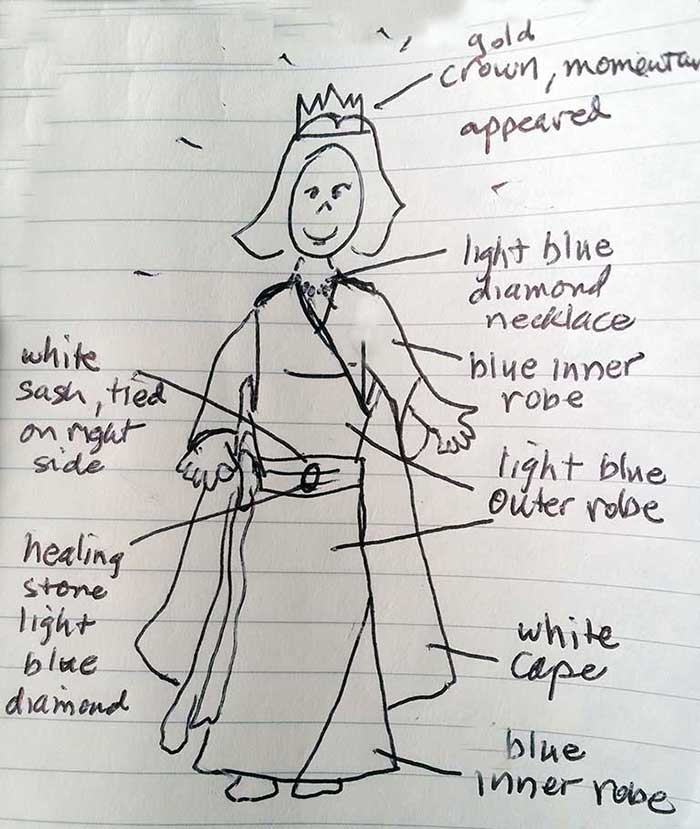 gold
crown, momentar
appeared
light blue
diamond
necklace
blue inner
robe
white
sash, tied
on right
side
light blue
outer robe
healing
stone
light
blue
diamond
white
cape
blue
inner robe